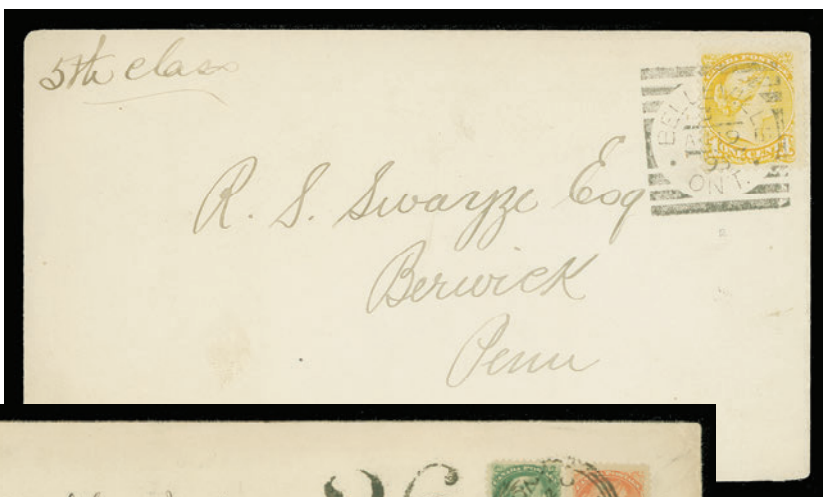 5th class
BELLEVILLE
9
93
ONT.
ONE CENT
R. S. Swayze Esq
Berwick
Penn